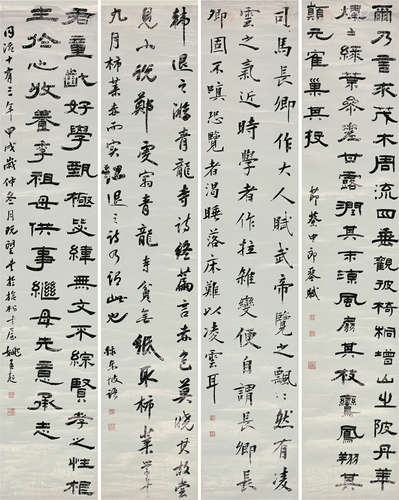 爾乃言求茂木周流四垂觀彼椅桐增山之陂丹華
煒煒綠葉參差甘露潤其末涼風扇其枝鸞鳳翔其
顛元雀巢其枝
節蔡中郎琴賦
司馬長卿作大人賦武帝覽之飄飄然有凌
雲之氣近時學者作拉雜變便自謂長卿長
卿固不嗔恐覽者渴睡落床難以凌雲耳
韓退之游青龍寺詩終篇言赤色莫曉其故嘗
見小說鄭虔寓青龍寺貧無紙取柿葉學書
九月柿葉赤而實紅退之詩乃謂此也
錄東坡語
君童齔好學甄極毖緯無文不綜賢孝之性根
生於心收養季祖母供事繼母先意承志
同治十有三年甲戌歲仲冬月既望書於 姚孟起